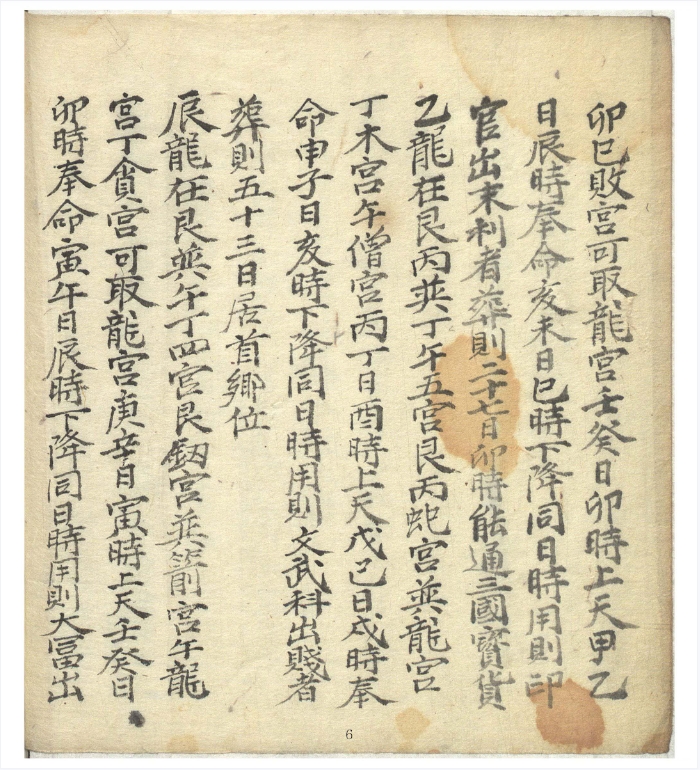 卯巳敗宮可取龍宮壬癸日卯時上天甲乙
日辰時奉命亥未日巳時下降同日時用則印
官出末利者葬則二十七日卯時能通三國寶貨
乙龍在艮丙英丁午五宮艮丙蛇宮英龍宮
丁木宮午僧宮丙丁日酉時上天戊己日戌時奉
命申子日亥時下降同日時用則文武科出賤者
葬則五十三日居首鄉位
辰龍在艮英午丁四宮艮釼宮英箭宮午龍
宮丁貪宮可取龍宮庚辛日寅時上天壬癸日
卯時奉命寅午日辰時下降同日時用則大冨出
6